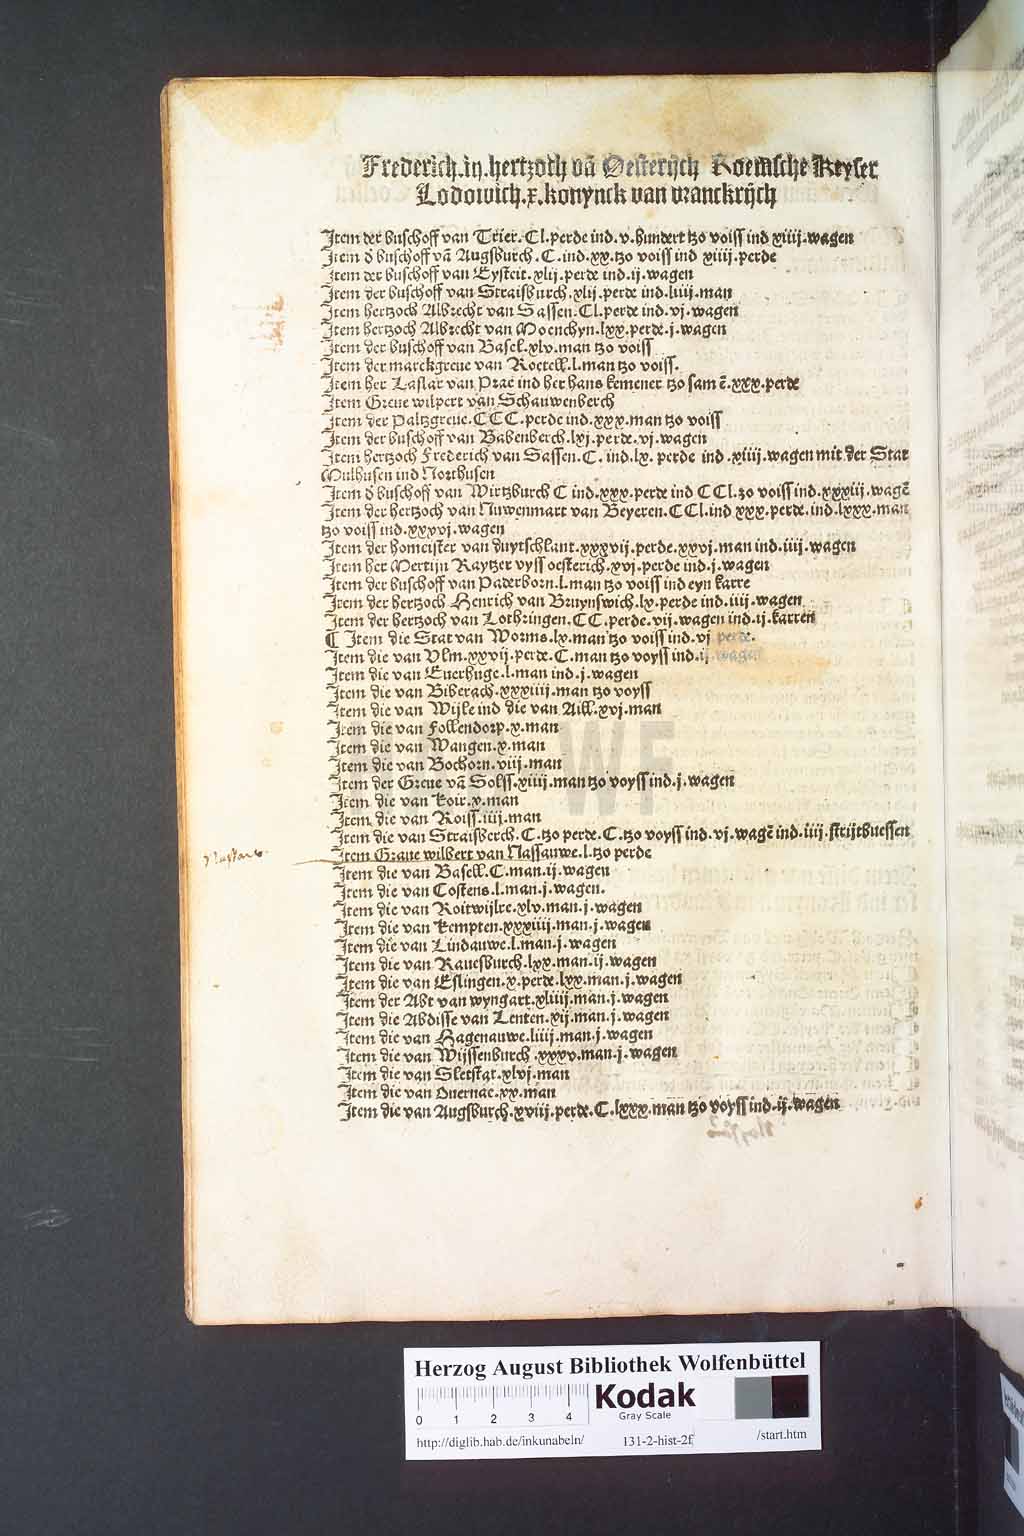 Frederich.iij.hertzoth vā Oesterijch Roemsche Keyser
Lodowich.x.konynck van vranckrijch
Item der buschoff van Trier.CL.perde ind.v.hundert tzo voiss ind xiiij.wagen
Item d buschoff vā Augsburch.C.ind.xx.tzo voiss ind xiiij.perde
Item der buschoff van Eysteit.xlij.perde ind.ij.wagen
Item der buschoff van Straisburch.xlij.perde ind.liiij.man
Item hertzoch Albrecht van Sassen.CL.perde ind.vj.wagen
Item hertzoch Albrecht van Moenchyn.lxx.perde.j.wagen
Item der buschoff van Basel.xlv.man tzo voiss
Item der marckgreue van Roetell.l.man tzo voiss.
Item her Laslar van Prae ind her hans kemener tzo sam ē.xxx.perde
Item Greue wilpert van Schauwenberch
Item der Paltzgreue.CCC.perde ind.xxx.man tzo voiss
Item der buschoff van Babenberch.lxj.perde.vj.wagen
Item hertzoch Frederich van Sassen.C.ind.lx.perde ind.xiiij.wagen mit der Stat
Mulhusen ind Northusen
Item d buschoff van Wirtzburch C ind.xxx.perde ind CCL.zo voiss ind.xxxiij.wagē
Item der hertzoch van Nuwenmart van Beyeren.CCL.ind xxx.perde.ind.lxxx.man
tzo voiss ind.xxxvj.wagen
Item der homeister van duytschlant.xxxvij.perde.xxvj.man ind.iiij.wagen
Item her Mertijn Raytzer vyss oesterich.xvj.perde ind.j.wagen
Item der buschoff van Paderborn.l.man tzo voiss ind eyn karre
Item der hertzoch Henrich van Bruynswich.lx.perde ind.iiij.wagen
Item der hertzoch van Lothringen.CC.perde.vij.wagen ind.ij.karren
¶ Item die Stat van Worms.lx.man tzo voiss ind.vj perde.
Item die van Vlm.xxvij.perde.C.man tzo voyss ind.ij.wagen
Item die van Euerhuge.l.man ind.j.wagen
Item die van Biberach.xxxiiij.man tzo voyss
Item die van Wijle ind die van Aill.xvj.man
Item die van Follendorp.x.man
Item die van Wangen.x.man
Item die van Bochorn.viij.man
Item der Greue vā Solss.xiiij.man tzo voyss ind.j.wagen
Item die van koir.x.man
Item die van Roiss.iiij.man
Item die van Straisberch.C.tzo perde.C.tzo voyss ind.vj.wagē ind.iiij.strijtbuessen
Item Graue wilbert van Nassauwe.l.tzo perde
Item die van Basell.C.man.ij.wagen
Item die van Costens.l.man.j.wagen.
Item die van Roitwijlre.xlv.man.j.wagen
Item die van kempten.xxxiiij.man.j.wagen
Item die van Lindauwe.l.man.j.wagen
Item die van Rauesburch.lxx.man.ij.wagen
Item die van Eslingen.x.perde.lxx.man.j.wagen
Item der Abt van wyngart.xliiij.man.j.wagen
Item die Abdisse van Lenten.xij.man.j.wagen
Item die van Hagenauwe.liiij.man.j.wagen
Item die van Wijssenburch.xxxv.man.j.wagen
Item die van Sletstat.xlvj.man
Item die van Ouernae.xx.man
Item die van Augsburch.xviij.perde.C.lxxx.man tzo voyss ind.ij.wagen
Herzog August Bibliothek Wolfenbüttel
0 1 2 3 4
Kodak
Gray Scale
http://diglib.hab.de/inkunabeln/ 131-2-hist-2f /start.htm